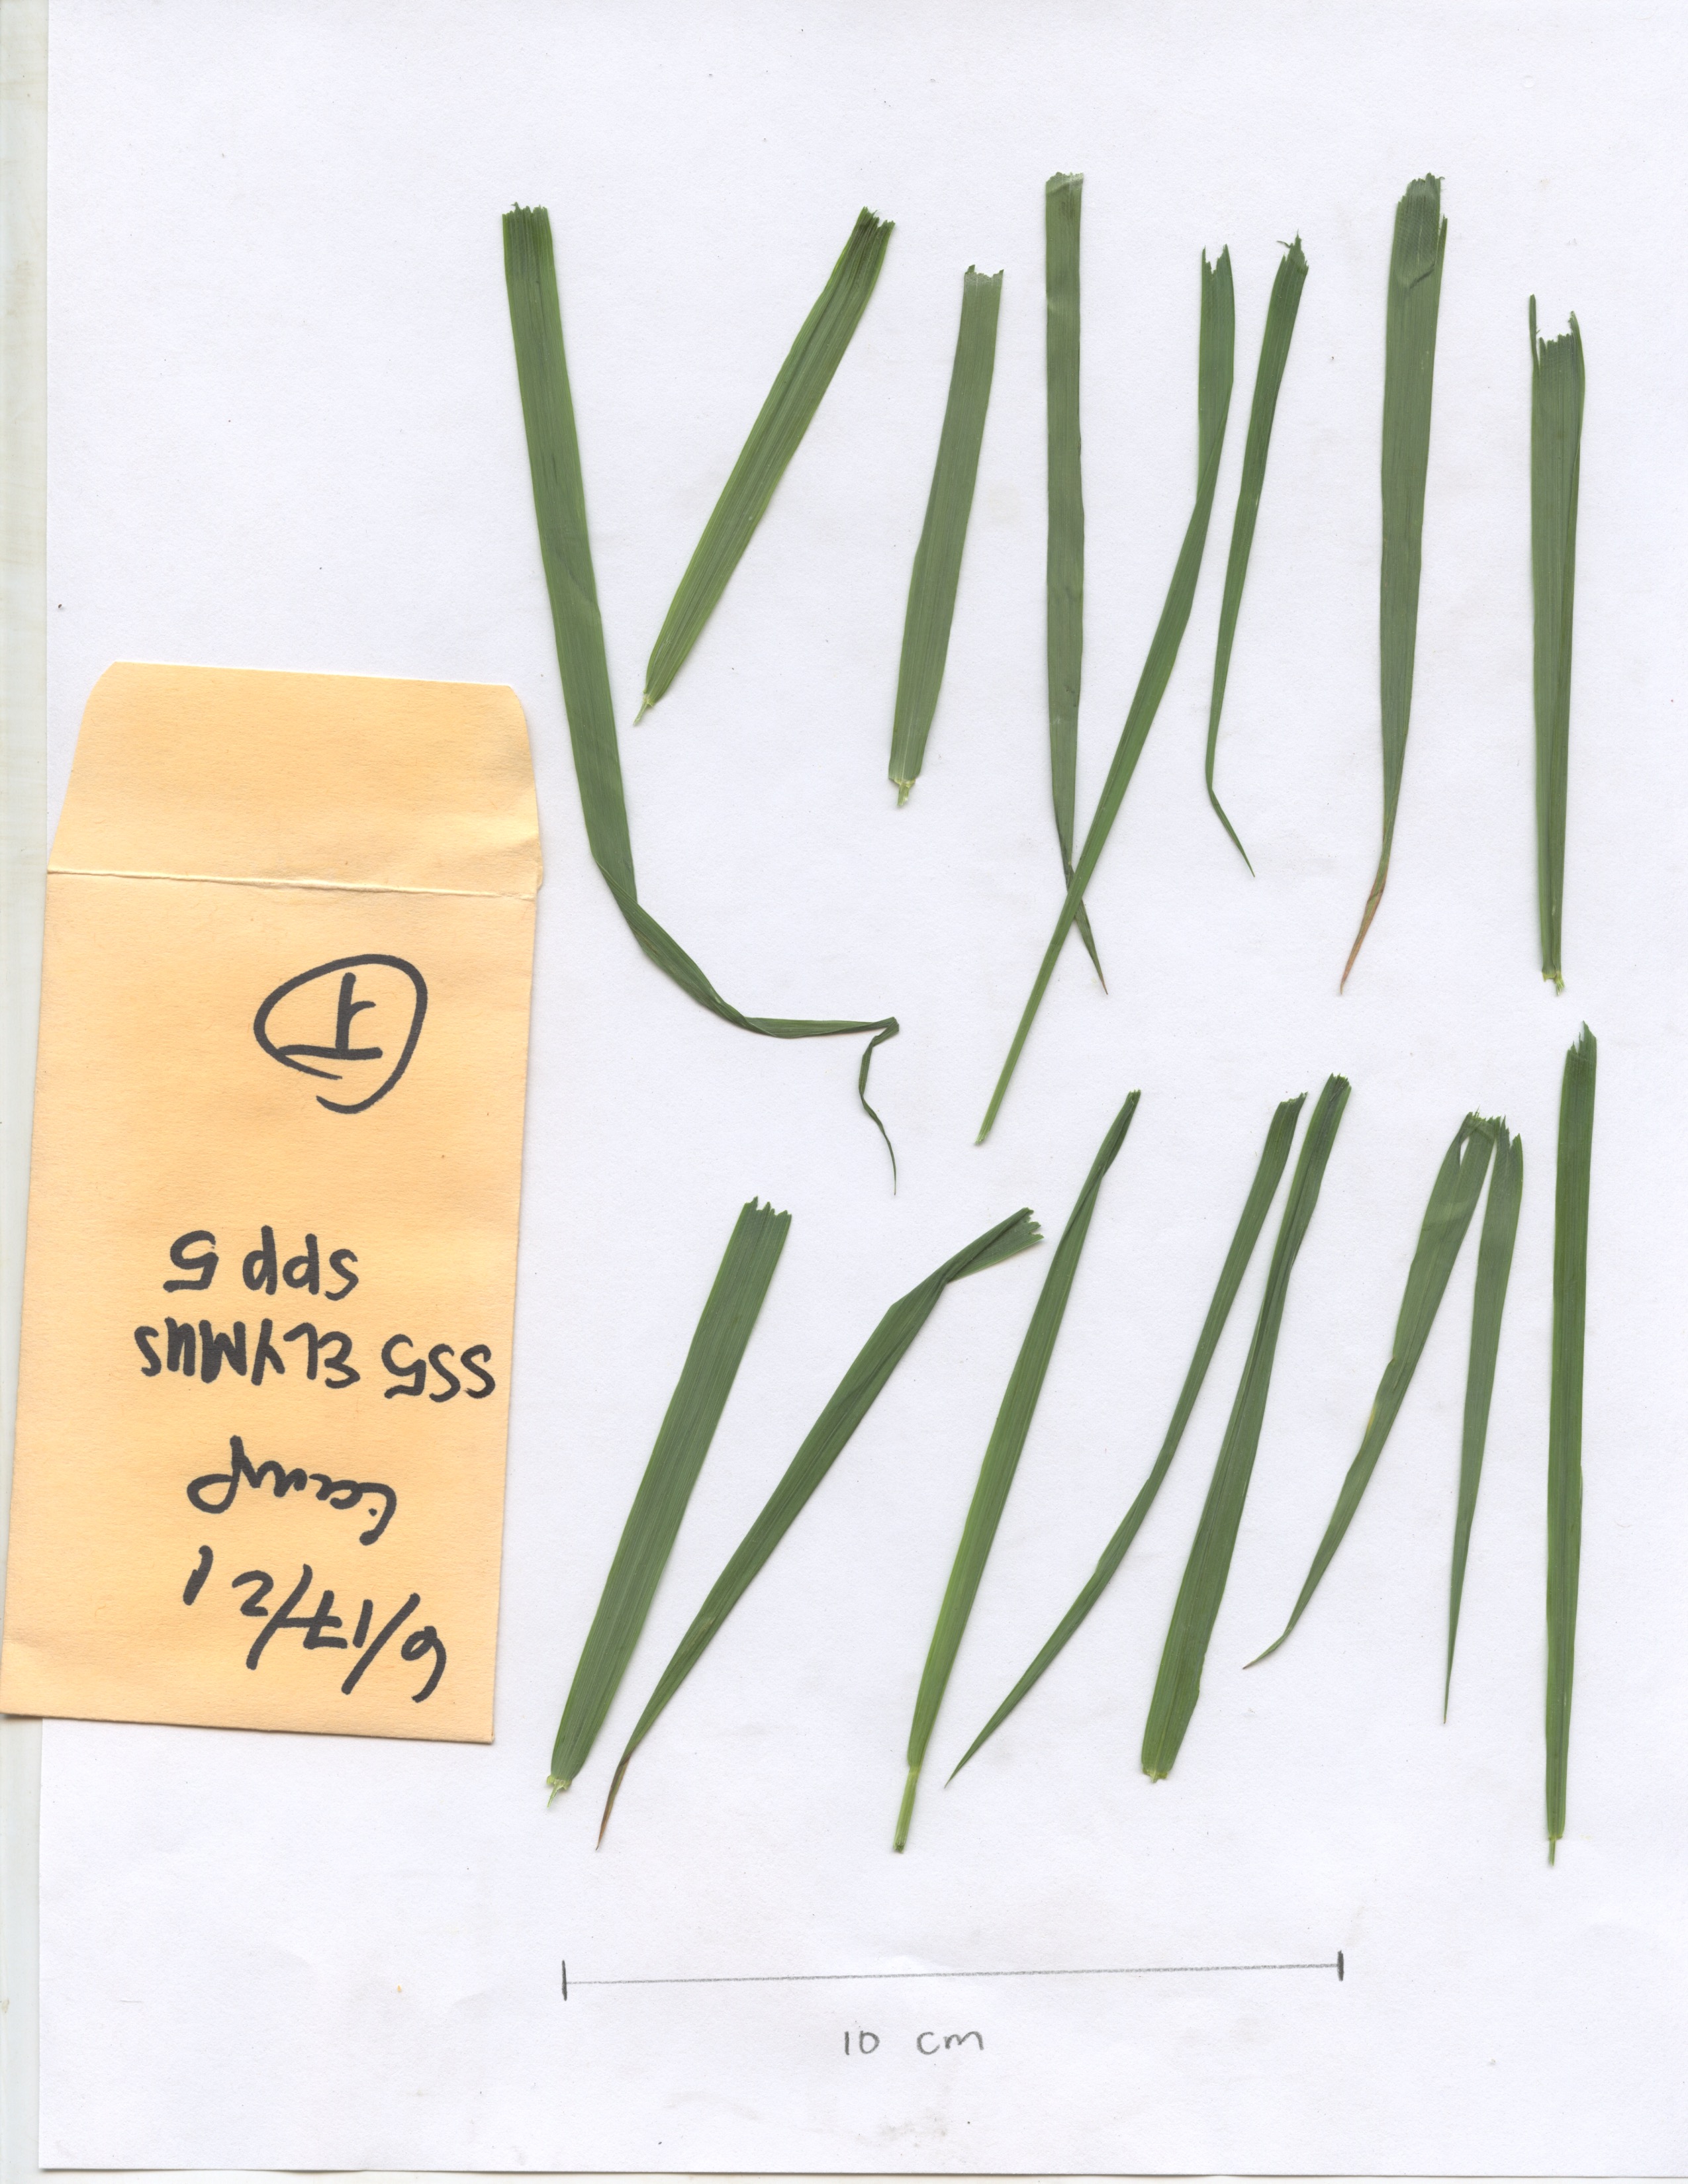 6/17/21
SS5 ELYMUS
spp 5
10 cm